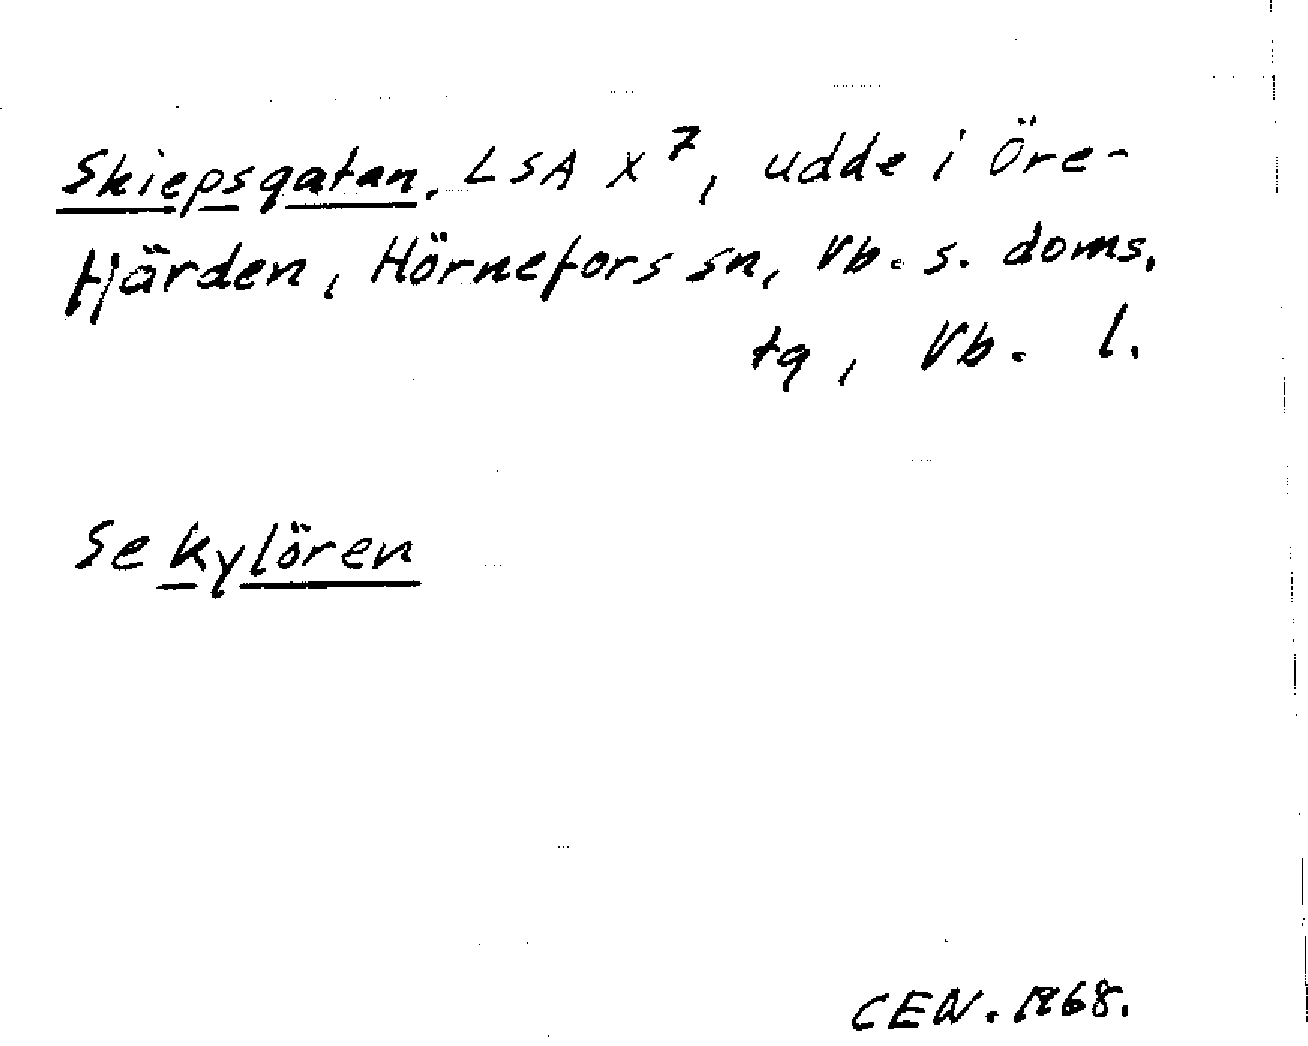 Skiepsgatan, LSA X⁷, udde i Öre-
fjärden, Hörnefors sn, Vb. s. doms.
tg, Vb. l.
Se Kylören
CEN. 1968.